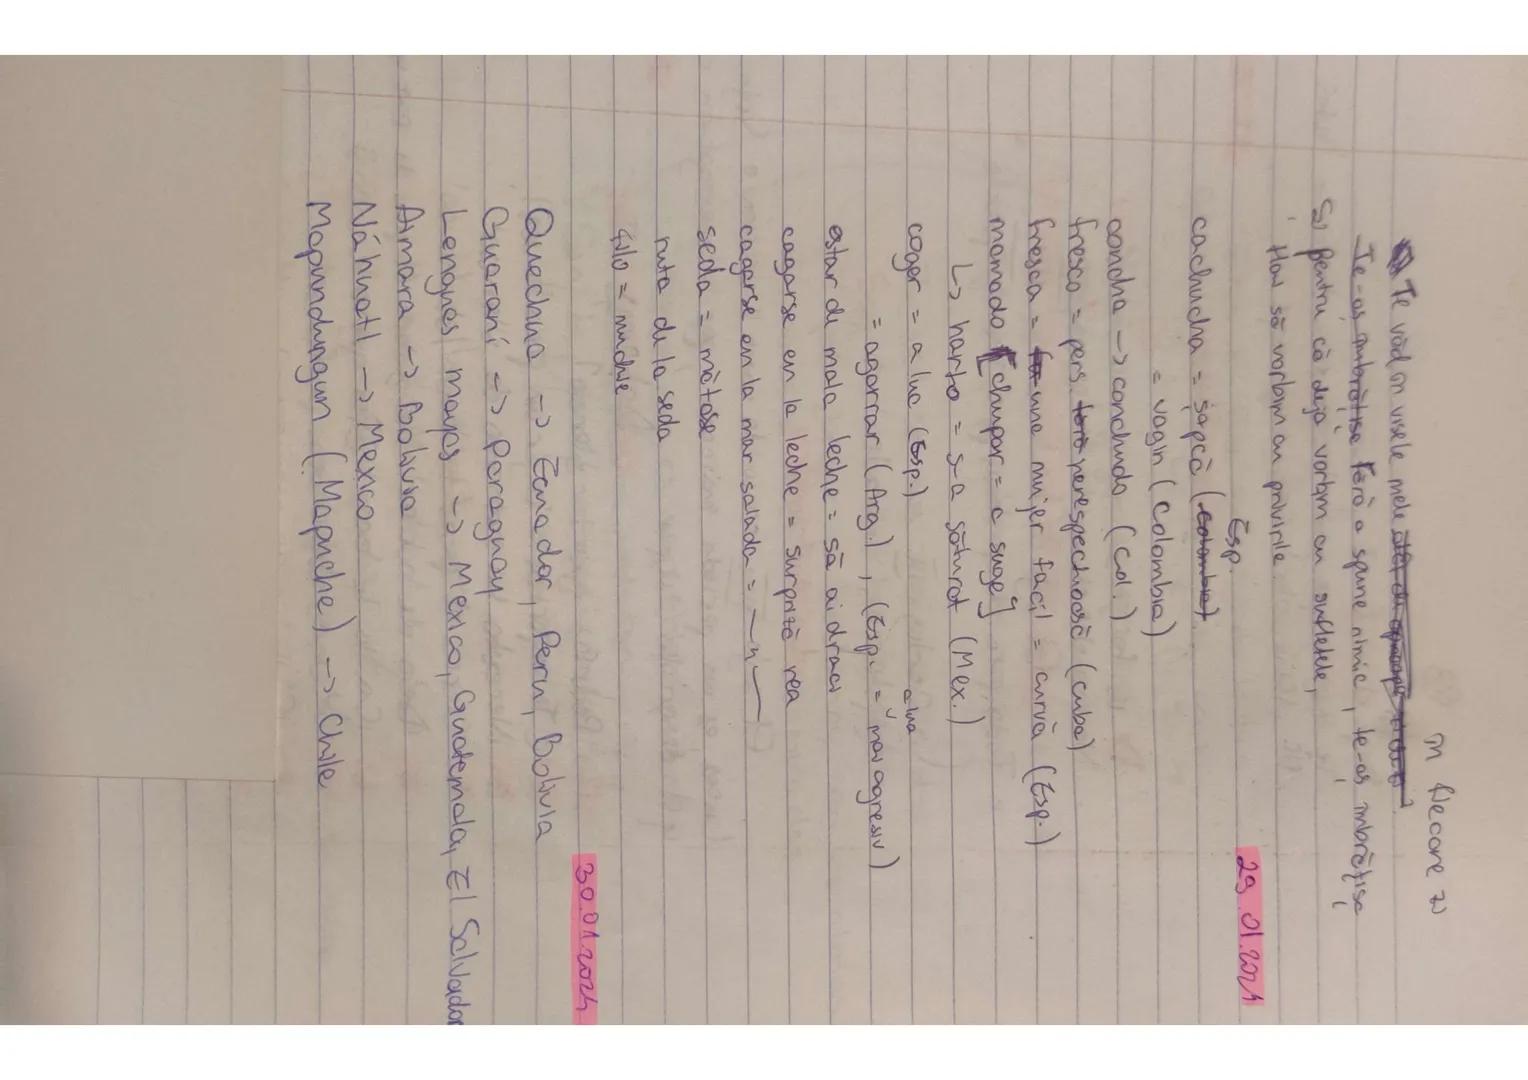 în fiecare zi
Te văd în visele mele
Te-aș îmbrățișa fără a spune nimic, te-aș îmbrățișa
Și pentru că deja vorbim cu sufletele,
Hai să vorbim cu privirile
29.01.2021
Esp.
cachucha = șapcă (Colombia)
= vagin (Colombia)
concha -> conchudo (Col.)
fresco = pers. nerespectuoasă (Cuba)
fresca = una mujer facil = curvă (Esp.)
mamado [chupar = a suge]
↳ harto = s-a săturat (Mex.)
coger = a lua (Esp.)
= agarrar (Arg.), (Esp. = a lua mai agresiv)
estar de mala leche = să ai draci
cagarse en la leche = surpriză rea
cagarse en la mar salada = —"—
seda = mătase
ruta de la seda
filo = muchie
30.01.2024
Quechua -> Ecuador, Peru, Bolivia
Guaraní -> Paraguay
Lenguas mayas -> Mexico, Guatemala, El Salvador
Aimara -> Bolivia
Náhuatl -> Mexico
Mapundungun (Mapuche) -> Chile